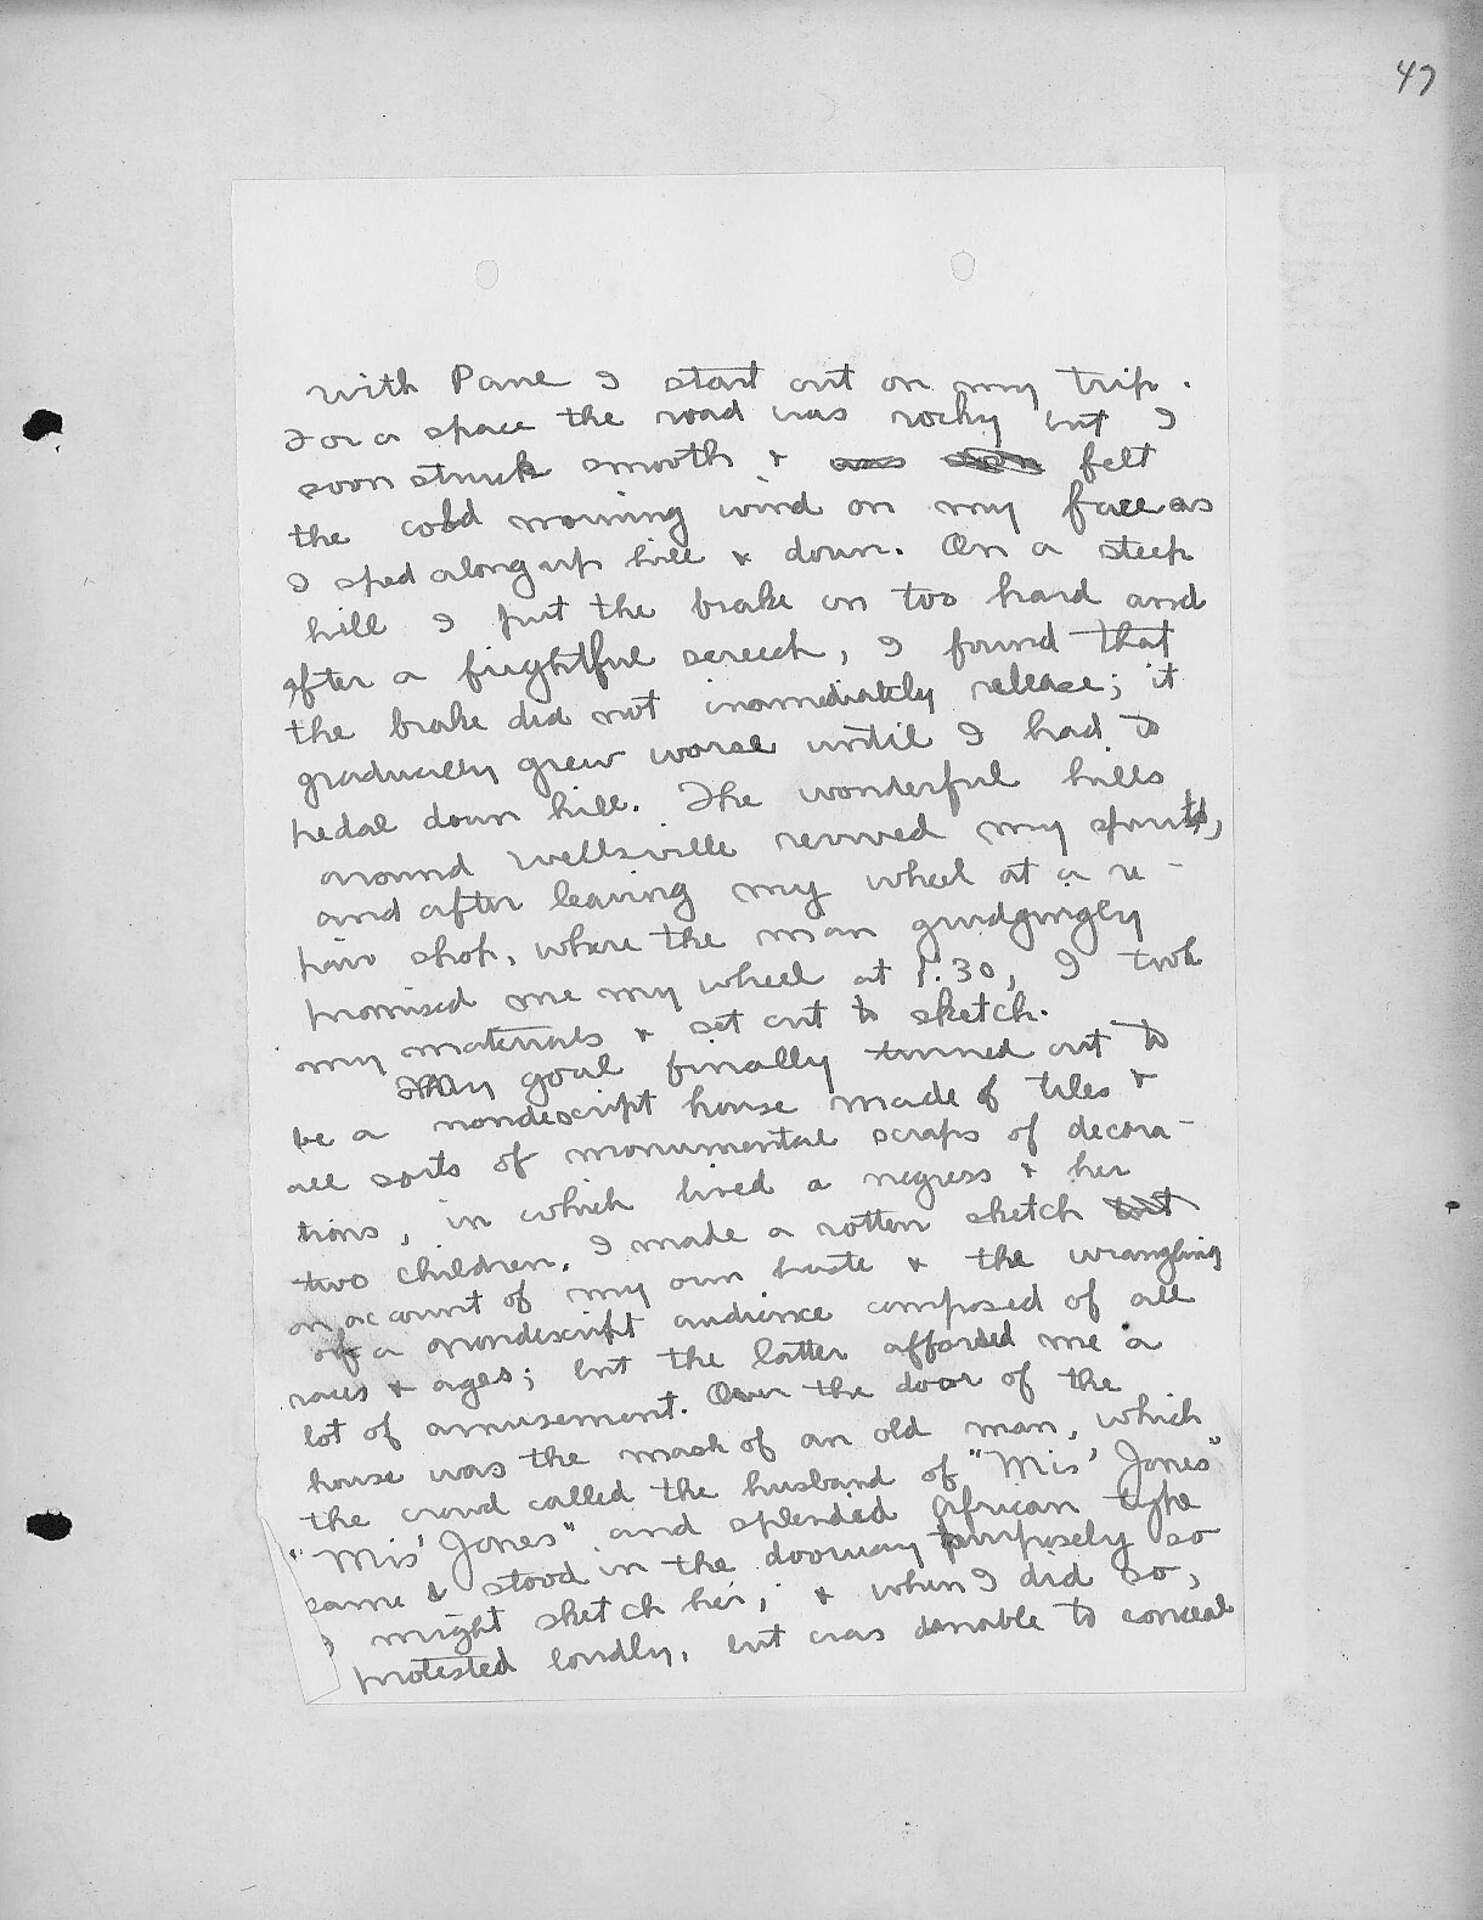 47
with Pane I start out on my trip.
For a space the road was rocky but I
soon struck smooth & felt
the cold morning wind on my face as
I sped along up hill & down. On a steep
hill I put the brake on too hard and
after a frightful screech, I found that
the brake did not immediately release; it
gradually grew worse until I had to
pedal down hill. The wonderful hills
around Wellsville revived my spirits,
and after leaving my wheel at a re-
pair shop, where the man grudgingly
promised me my wheel at 1:30, I took
my materials & set out to sketch.
My goal finally turned out to
be a nondescript house made of tiles &
all sorts of monumental scraps of decora-
tions, in which lived a negress & her
two children. I made a rotten sketch
on account of my own haste & the wrangling
of a nondescript audience composed of all
races & ages; but the latter afforded me a
lot of amusement. Over the door of the
house was the mask of an old man, which
the crowd called the husband of "Mis' Jones"
"Mis' Jones" and splendid African type
came & stood in the doorway purposely so
I might sketch her; & when I did so,
protested loudly, but was unable to conceal